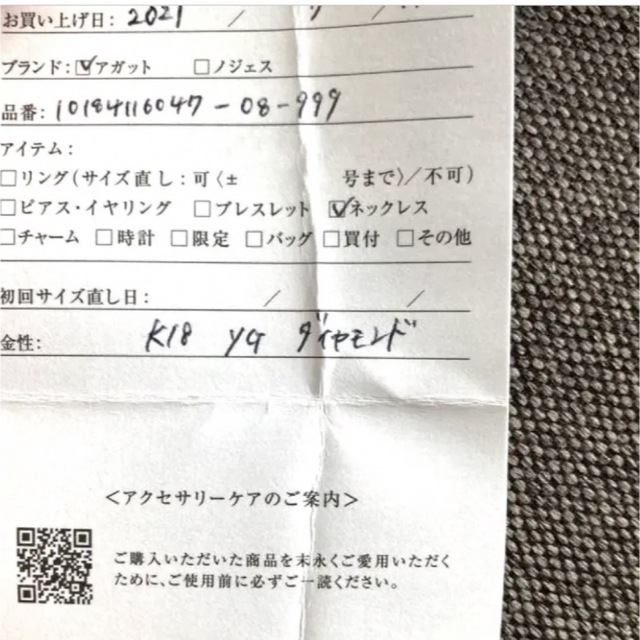 お買い上げ日: 2021 / 7 /
ブランド: ☑アガット □ノジェス
品番: 10184116047-08-999
アイテム:
□リング(サイズ直し:可〈± 号まで〉/不可)
□ピアス・イヤリング □ブレスレット ☑ネックレス
□チャーム □時計 □限定 □バッグ □買付 □その他
初回サイズ直し日: / /
金性: K18 YG ダイヤモンド
<アクセサリーケアのご案内>
ご購入いただいた商品を末永くご愛用いただく
ために、ご使用前に必ずご一読ください。